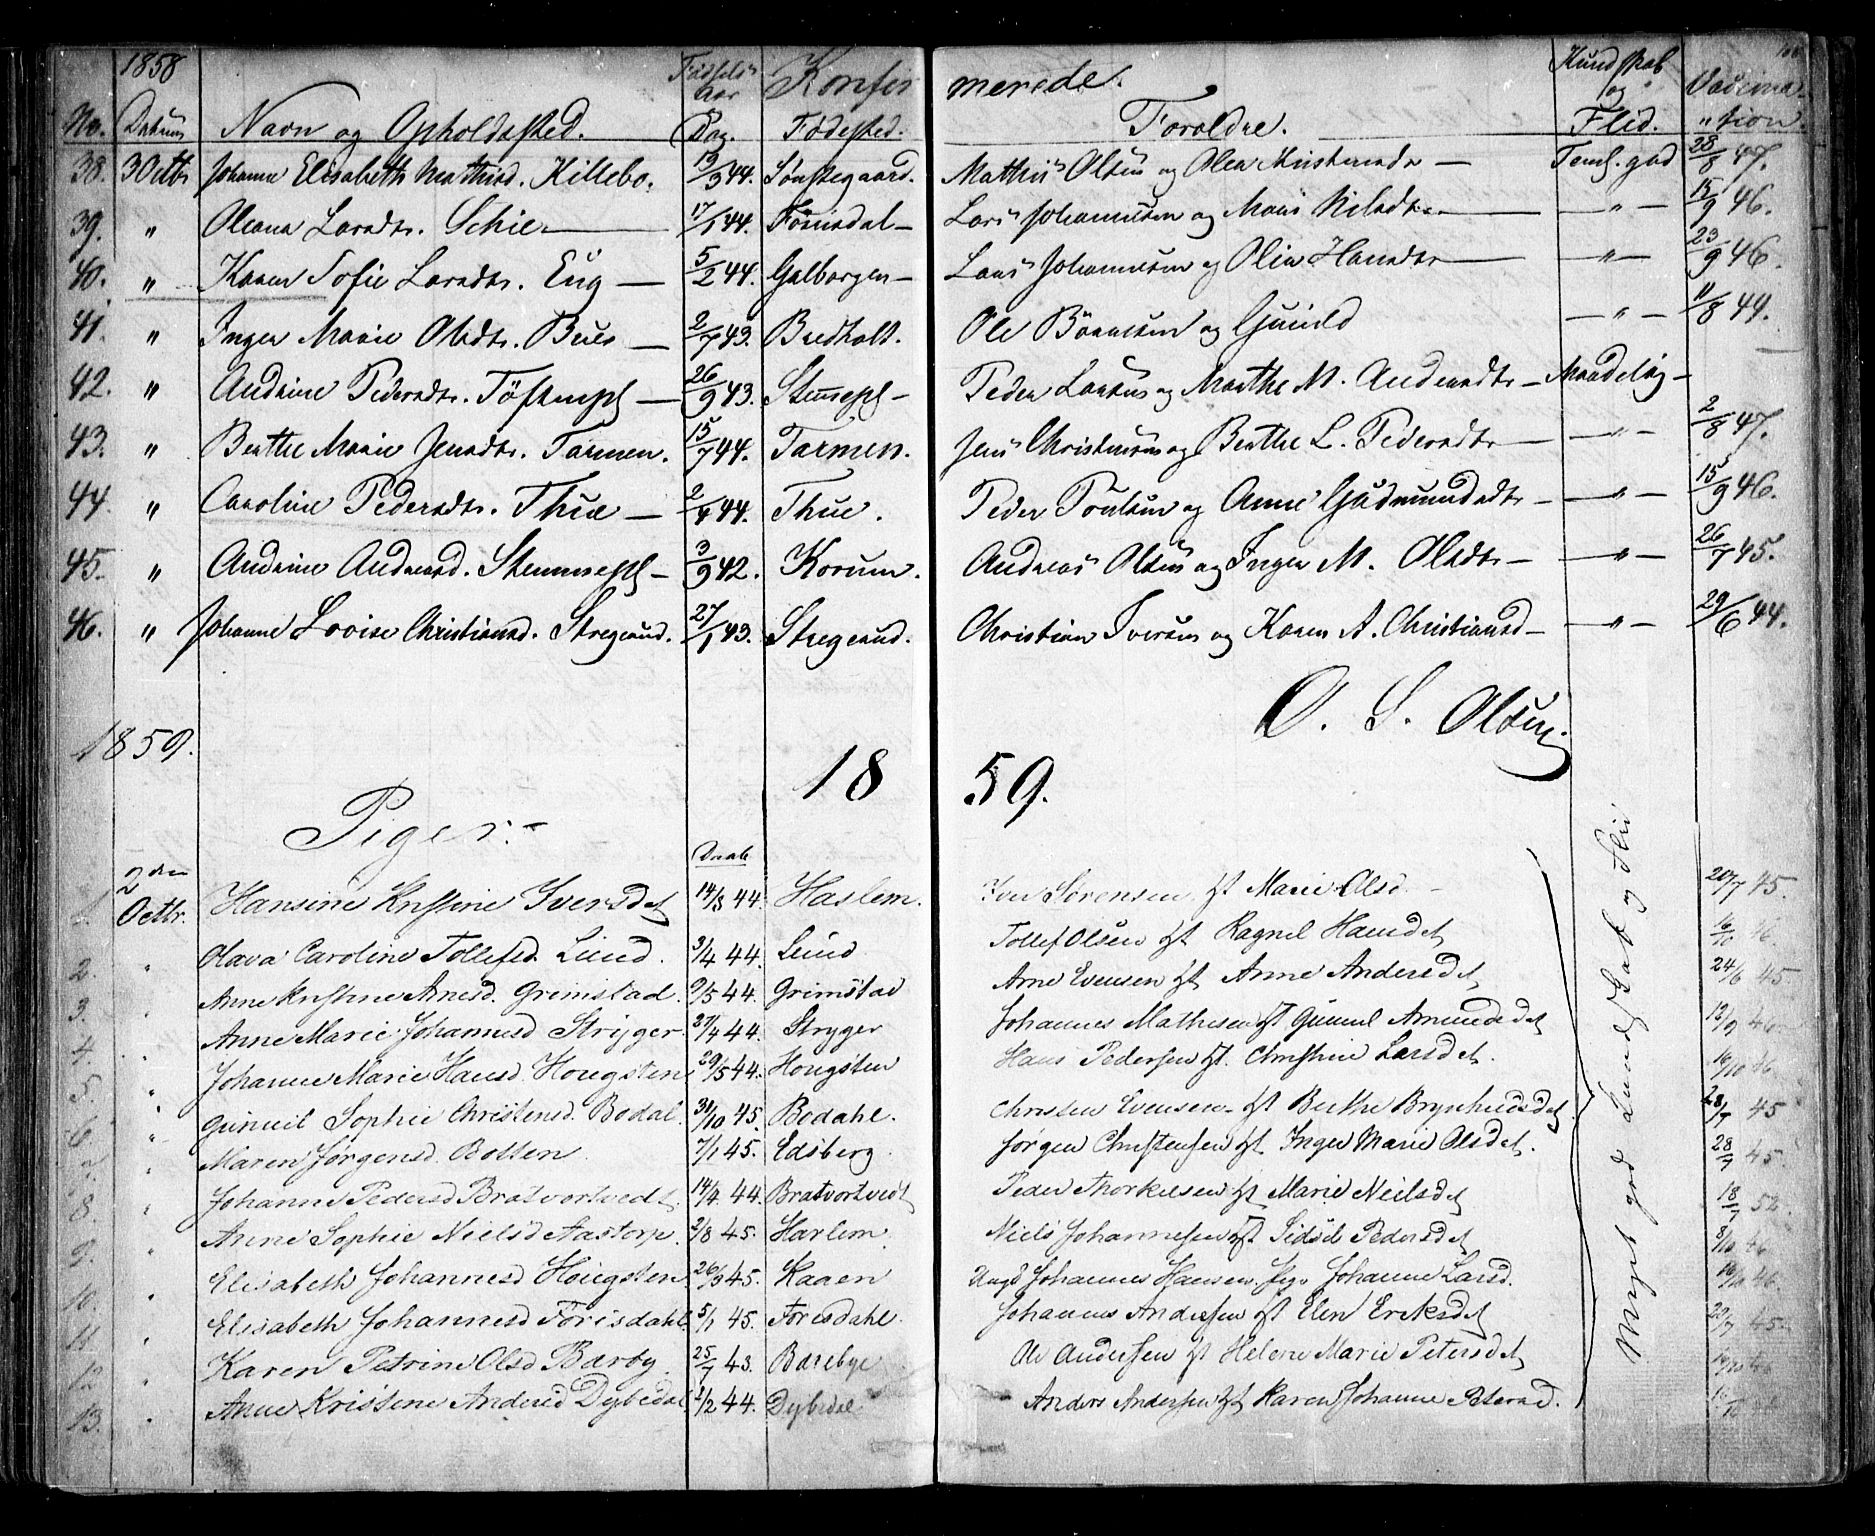 1858 Fødsels- Konfir merede. Kundskab
aar og Vaccina-
No. Datum Navn og Opholdssted. Dag. Fødested. Foreldre. Flid. tion.
38. 3 Octbr Johanne Elisabeth Mathisd. Killebo. 19/3 44. Sønstegaard. Mathis Olsen og Olea Kristensdr — Teml. god 28/8 47.
39. " Oleana Larsdtr. Schie — 17/1 44. Förisdal — Lars Johannesen og Maris Nilsdtr — — " — 15/9 46.
40. " Karen Sofie Larsdtr. Eng — 5/2 44. Galborgen — Lars Johannesen og Olia Hansdtr — — " — 23/9 46.
41. " Inger Marie Olsdtr. Bues — 2/7 43. Bredholt. Ole Börresen og Gunild — " — 11/8 44.
42. " Andrine Pedersdtr. — 26/9 43. — Peder Larsen og Marthe M. Andersdtr — Maadelig —
43. " Berthe Marie Jensdtr. Tarmen. 15/7 44. Tarmen. Jens Christensen og Berthe L. Pedersdtr — — " — 2/8 47.
44. " Caroline Pedersdtr. Thue — 2/4 44. Thue. Peder Poulsen og Anne Gudmundsdtr — — " — 15/9 46.
45. " Andrine Andreasd. — 3/9 42. Korum. Andreas Olsen og Inger M. Olsdtr — — " — 26/7 45.
46. " Johanne Lovise Christiansd. Stregerud. 27/1 43. Stregerud. Christian Iversen og Karen A. Christiansd — — " — 29/6 44.
O. S. Olsen.
1859.
18 59.
Piger. -
Daab
1. 2den Octbr. Hansine Kristine Iversdet 14/3 44 Haslem. Iver Sørensen Hst Marie Olsd. - 20/7 45.
2. " Olava Caroline Tollefsd. Lund. 3/4 44. Lund Tollef Olsen Hst Ragnil Hansdet 16/10 46.
3. " Anne Kristine Arnesd. Grimstad. 9/5 44. Grimstad Arne Evensen Hst Anne Andersdet 24/6 45
4. " Anne Marie Johannesd Stryger. 27/4 44. Stryger Johannes Mathisen Hst Gunnil Amundsdet 13/9 46
5. " Johanne Marie Hansd Hougsten 29/5 44. Hougsten Hans Pedersen Hst. Christine Larsdet. 16/10 46
6. " Gunnil Sophie Christensd. Bodal. 31/10 45. Bodahl. Christen Evensen Hst Berthe Brynhildsdet 28/7 45
7. " Maren Jørgensd. Botten 7/1 45. Edsberg Jørgen Christensen Hst. Inger Marie Olsdet. 28/7 45.
8. " Johanne Pedersd Bratvortvedt. 14/4 44. Bratvortvedt Peder Thorkelsen Hst Marie Neilsdet 18/7 52.
9. " Anne Sophie Nielsd Aastorp. 2/8 45. Harlem Niels Johannesen Hst Sidsel Pedersdet 8/10 46
10. " Elisabeth Johannesd Hougsten 26/3 45. Kaaen Ungk Johannes Hansen. Pige Johanne Larsd. 16/10 46.
11. " Elisabeth Johannesd Förisdahl 5/1 45. Forisdahl. Johannes Andersen Hst Elen Eriksdet 22/7 45.
12 " Karen Petrine Olsd Bærby 25/7 43. Bærebye Ole Andersen Hst Helene Marie Petersdet 14/10 46
13. " Anne Kristine Andersd Dybedal 1/2 44. Dybedal. Anders Andersen Hst Karen Johanne Petersd.
Meget god Kundskab og Flid